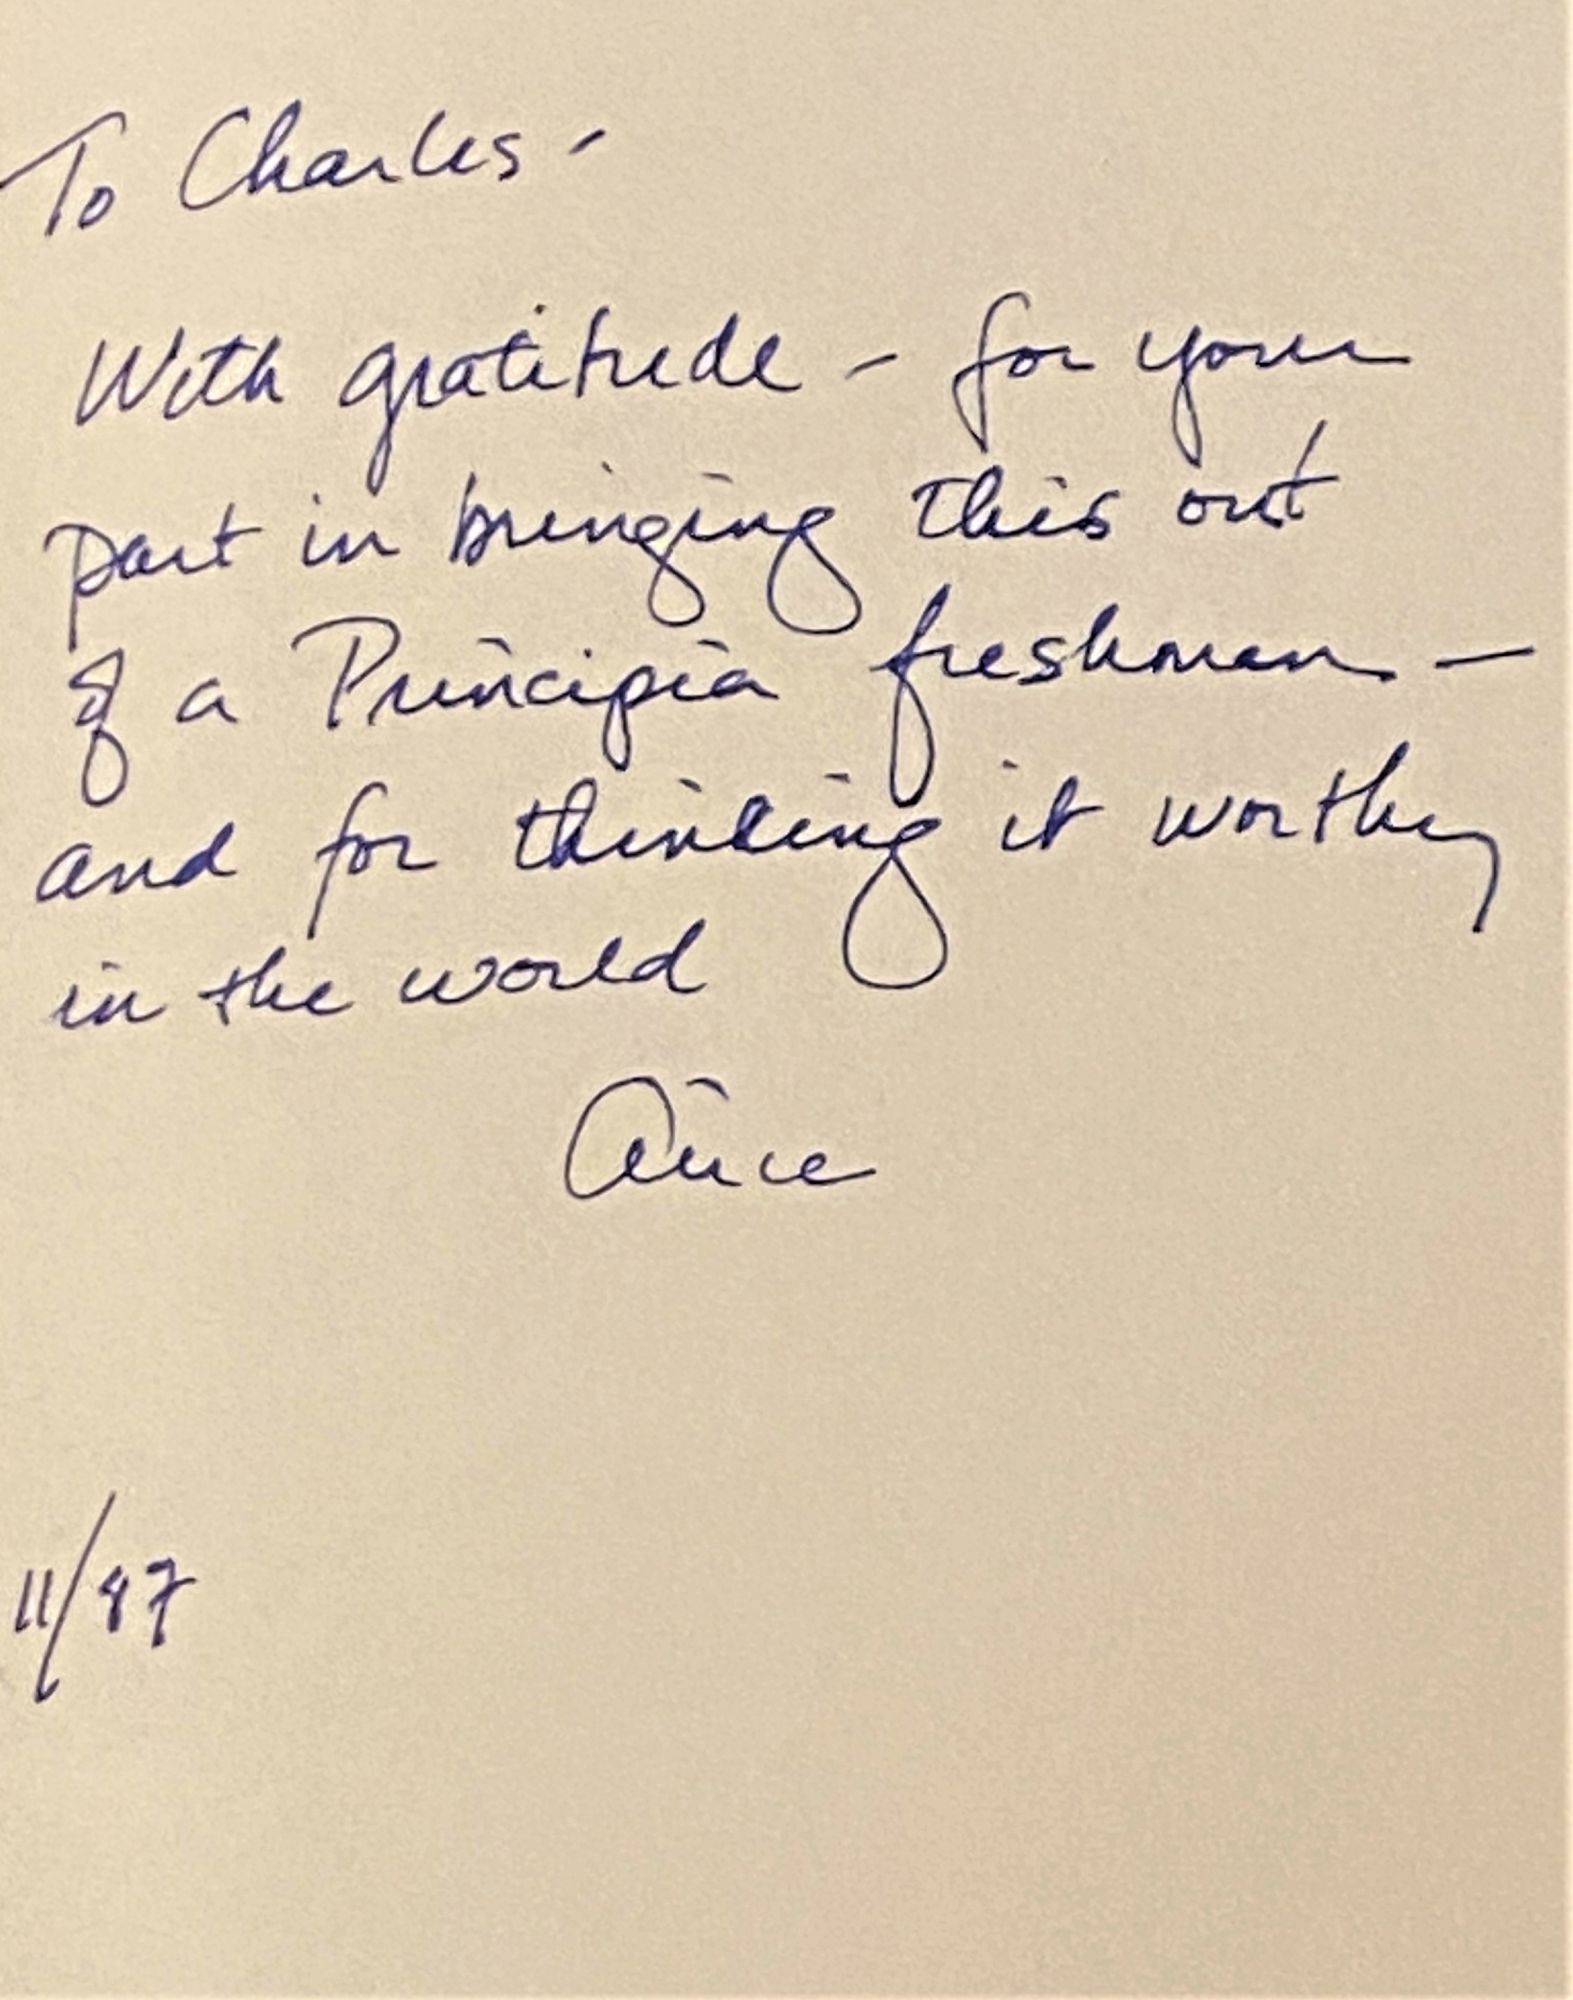 To Charles -
With gratitude - for your
part in bringing this out
of a Principia freshman -
and for thinking it worthy
in the world
Alice
11/87